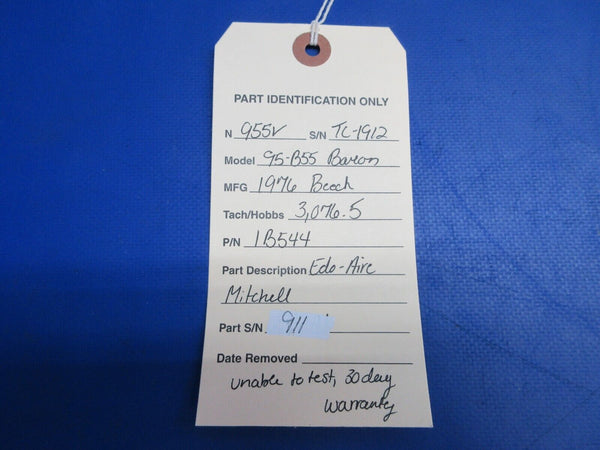 PART IDENTIFICATION ONLY
N 955V S/N TC-1912
Model 95-B55 Baron
MFG 1976 Beech
Tach/Hobbs 3,076.5
P/N 1B544
Part Description Edo-Aire
Mitchell
Part S/N 911
Date Removed
unable to test, 30 day
warranty